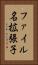 ファイル
名拡張子